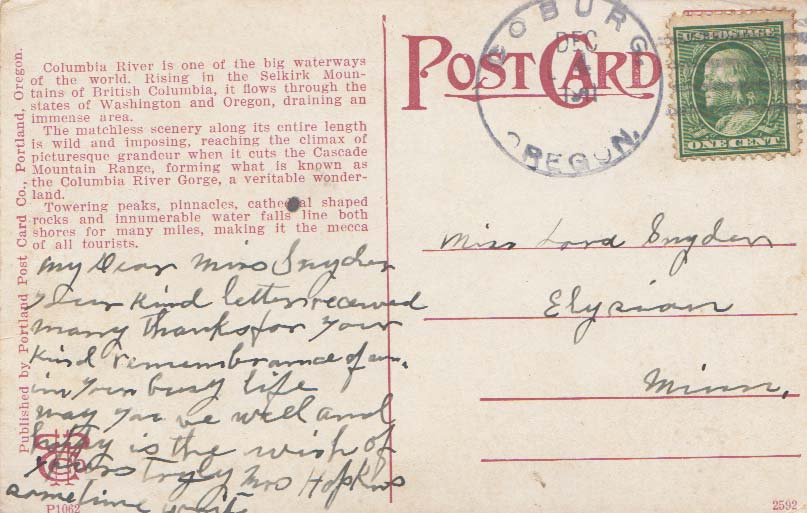 Published by Portland Post Card Co., Portland, Oregon.
Columbia River is one of the big waterways
of the world. Rising in the Selkirk Moun-
tains of British Columbia, it flows through the
states of Washington and Oregon, draining an
immense area.
The matchless scenery along its entire length
is wild and imposing, reaching the climax of
picturesque grandeur when it cuts the Cascade
Mountain Range, forming what is known as
the Columbia River Gorge, a veritable wonder-
land.
Towering peaks, pinnacles, cathedral shaped
rocks and innumerable water falls line both
shores for many miles, making it the mecca
of all tourists.
My Dear Miss Snyder
Your kind letter received
many thanks for your
kind remembrance of
in your busy life
may you be well and
happy is the wish of
yours truly Mrs Hopkins
sometime
P1062
POST CARD
COBURG
DEC
OREGON.
U.S. POSTAGE
ONE CENT
Miss Snyder
Elysian
Minn.
2592